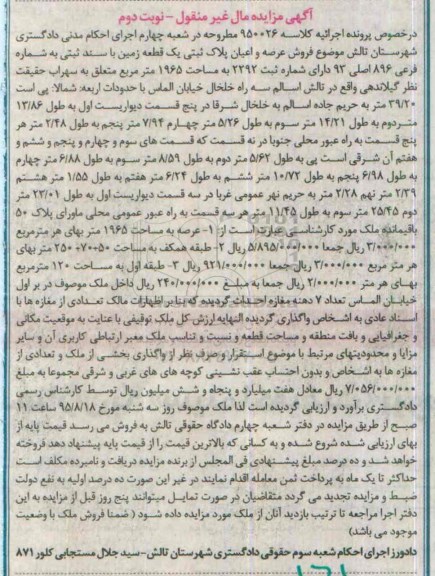 آگهی مزایده مال غیر منقول - نوبت دوم
درخصوص پرونده اجرائیه کلاسه ۹۵۰۰۲۶ مطروحه در شعبه چهارم اجرای احکام مدنی دادگستری
شهرستان تالش موضوع فروش عرصه و اعیان پلاک ثبتی یک قطعه زمین با سند ثبتی به شماره
فرعی ۸۹۶ اصلی ۹۳ دارای شماره ثبت ۲۳۹۲ به مساحت ۱۹۶۵ متر مربع متعلق به سهراب حقیقت
نظر گیلاندهی واقع در تالش اسالم سه راه خلخال خیابان الماس با حدودات اربعه: شمالا: پی است
۳۹/۲۰ متر به حریم جاده اسالم به خلخال شرقا در پنج قسمت دیواریست اول به طول ۱۳/۸۶
متر دوم به طول ۱۴/۲۱ متر سوم به طول ۵/۲۶ متر چهارم ۷/۹۴ متر پنجم به طول ۲/۴۸ متر هر
پنج قسمت به راه عبور محلی جنوبا در نه قسمت که قسمت های سوم و چهارم و پنجم و ششم و
هفتم آن شرقی است پی به طول ۵/۶۲ متر دوم به طول ۸/۵۹ متر سوم به طول ۶/۸۸ متر چهارم
به طول ۶/۹۸ پنجم به طول ۱۰/۷۲ متر ششم به طول ۶/۲۴ متر هفتم به طول ۱/۵۵ متر هشتم
۲/۳۹ متر نهم ۲/۲۸ متر به حریم نهر عمومی غربا در سه قسمت دیواریست اول به طول ۲۳/۰۱ متر
دوم ۲۵/۴۵ متر سوم به طول ۱۱/۴۵ متر هر سه قسمت به راه عبور عمومی محلی ماورای پلاک ۵۰
باقیمانده ملک مورد کارشناسی عبارت است از: ۱- عرصه به مساحت ۱۹۶۵ متر بهای هر مترمربع
۳/۰۰۰/۰۰۰ ریال جمعا ۵/۸۹۵/۰۰۰/۰۰۰ ریال ۲- طبقه همکف به مساحت ۵۰+۷۰+ ۲۵۰ متر بهای
هر متر مربع ۳/۰۰۰/۰۰۰ ریال جمعا ۹۲۱/۰۰۰/۰۰۰ ریال ۳- طبقه اول به مساحت ۱۲۰ مترمربع
بهای هر متر ۲/۰۰۰/۰۰۰ ریال جمعا به مبلغ ۲۴۰/۰۰۰/۰۰۰ ریال داخل ملک موصوف در بر اول
خیابان الماس تعداد ۷ دهنه مغازه احداث گردیده که بنابر اظهارات مالک تعدادی از مغازه ها با
اسناد عادی به اشخاص واگذاری گردیده النهایه ارزش کل ملک توقیفی با عنایت به موقعیت مکانی
و جغرافیایی و بافت منطقه و مساحت قطعه و نسبت و تناسب ملک معبر ارتباطی کاربری آن و سایر
مزایا و محدودیتهای مرتبط با موضوع استقرار و صرف نظر از واگذاری بخشی از ملک و تعدادی از
مغازه ها به اشخاص و بدون احتساب عقب نشینی کوچه های های غربی و شرقی مجموعا به مبلغ
۷/۰۵۶/۰۰۰/۰۰۰ ریال معادل هفت میلیارد و پنجاه و شش میلیون ریال توسط کارشناس رسمی
دادگستری برآورد و ارزیابی گردیده است لذا ملک موصوف روز سه شنبه مورخ ۹۵/۸/۱۸ ساعت ۱۱
صبح از طریق مزایده در دفتر شعبه چهارم دادگاه حقوقی تالش به فروش می رسد قیمت پایه از
بهای ارزیابی شده شروع شده و به کسانی که بالاترین قیمت را از قیمت پایه پیشنهاد دهد فروخته
خواهد شد و ده درصد مبلغ پیشنهادی فی المجلس از برنده مزایده دریافت و نامبرده مکلف است
حداکثر تا یک ماه به پرداخت ثمن معامله اقدام نمایند در غیر این صورت ده درصد اولیه به نفع دولت
ضبط و مزایده تجدید می گردد متقاضیان در صورت تمایل میتوانند پنج روز قبل از مزایده به این
دفتر اجرا مراجعه تا ترتیب بازدید آنان از ملک مورد مزایده داده شود ( ضمنا فروش ملک با وضعیت
موجود می باشد)
دادورز اجرای احکام شعبه سوم حقوقی دادگستری شهرستان تالش-سید جلال مستجابی کلور ۸۷۱